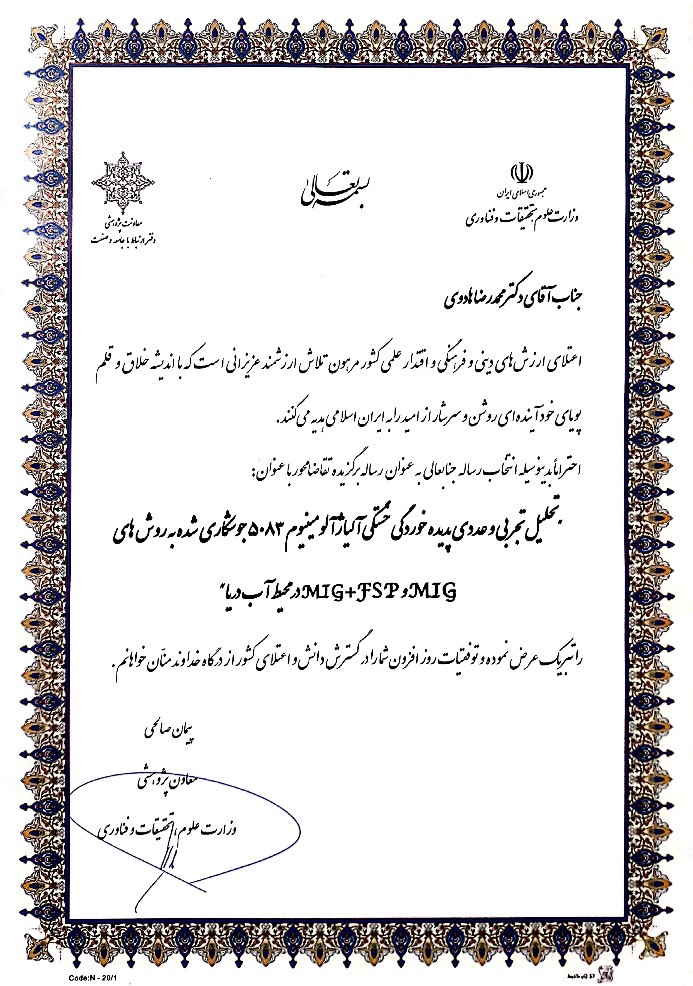 بسمه تعالی
جمهوری اسلامی ایران
وزارت علوم، تحقیقات و فناوری
معاونت پژوهشی
دفتر ارتباط با جامعه و صنعت
جناب آقای دکتر محمدرضا هادوی
اعتلای ارزش های دینی و فرهنگی و اقتدار علمی کشور مرهون تلاش ارزشمند عزیزانی است که با اندیشه خلاق و قلم
پویای خود آینده ای روشن و سرشار از امید را به ایران اسلامی هدیه می کنند.
احتراماً بدینوسیله انتخاب رساله جنابعالی به عنوان رساله برگزیده تقاضا محور با عنوان:
"تحلیل تجربی و عددی پدیده خوردگی خستگی آلیاژ آلومینیوم ۵۰۸۳ جوشکاری شده به روش های
MIG و MIG+FSP در محیط آب دریا"
را تبریک عرض نموده و توفیقات روز افزون شما را در گسترش دانش و اعتلای کشور از درگاه خداوند منّان خواهانم.
پیمان صالحی
معاون پژوهشی
وزارت علوم، تحقیقات و فناوری
Code:N - 20/1